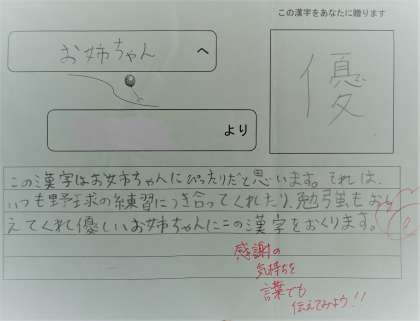 この漢字をあなたに贈ります
お姉ちゃん へ
優
より
この漢字はお姉ちゃんにぴったりだと思います。それは、
いつも野球の練習につき合ってくれたり、勉強もおし
えてくれ優しいお姉ちゃんにこの漢字をおくります。
感謝の
気持ちを
言葉でも
伝えてみよう!!